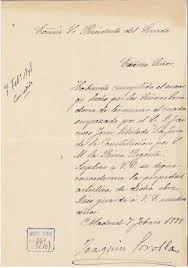 Excmo Sr Presidente del Senado
Excmo Señor
Habiendo cumplido el encar
go hecho por los Señores
de terminar el cuadro
empezado por el
Jura
de la Constitución por S.
M. la Reina Regente,
Suplico a V. E. se digne
concederme la propiedad
artística de dicha obra
Dios guarde a V. E. muchos
años
Madrid 7 Febrero 1898
Joaquín Sorolla